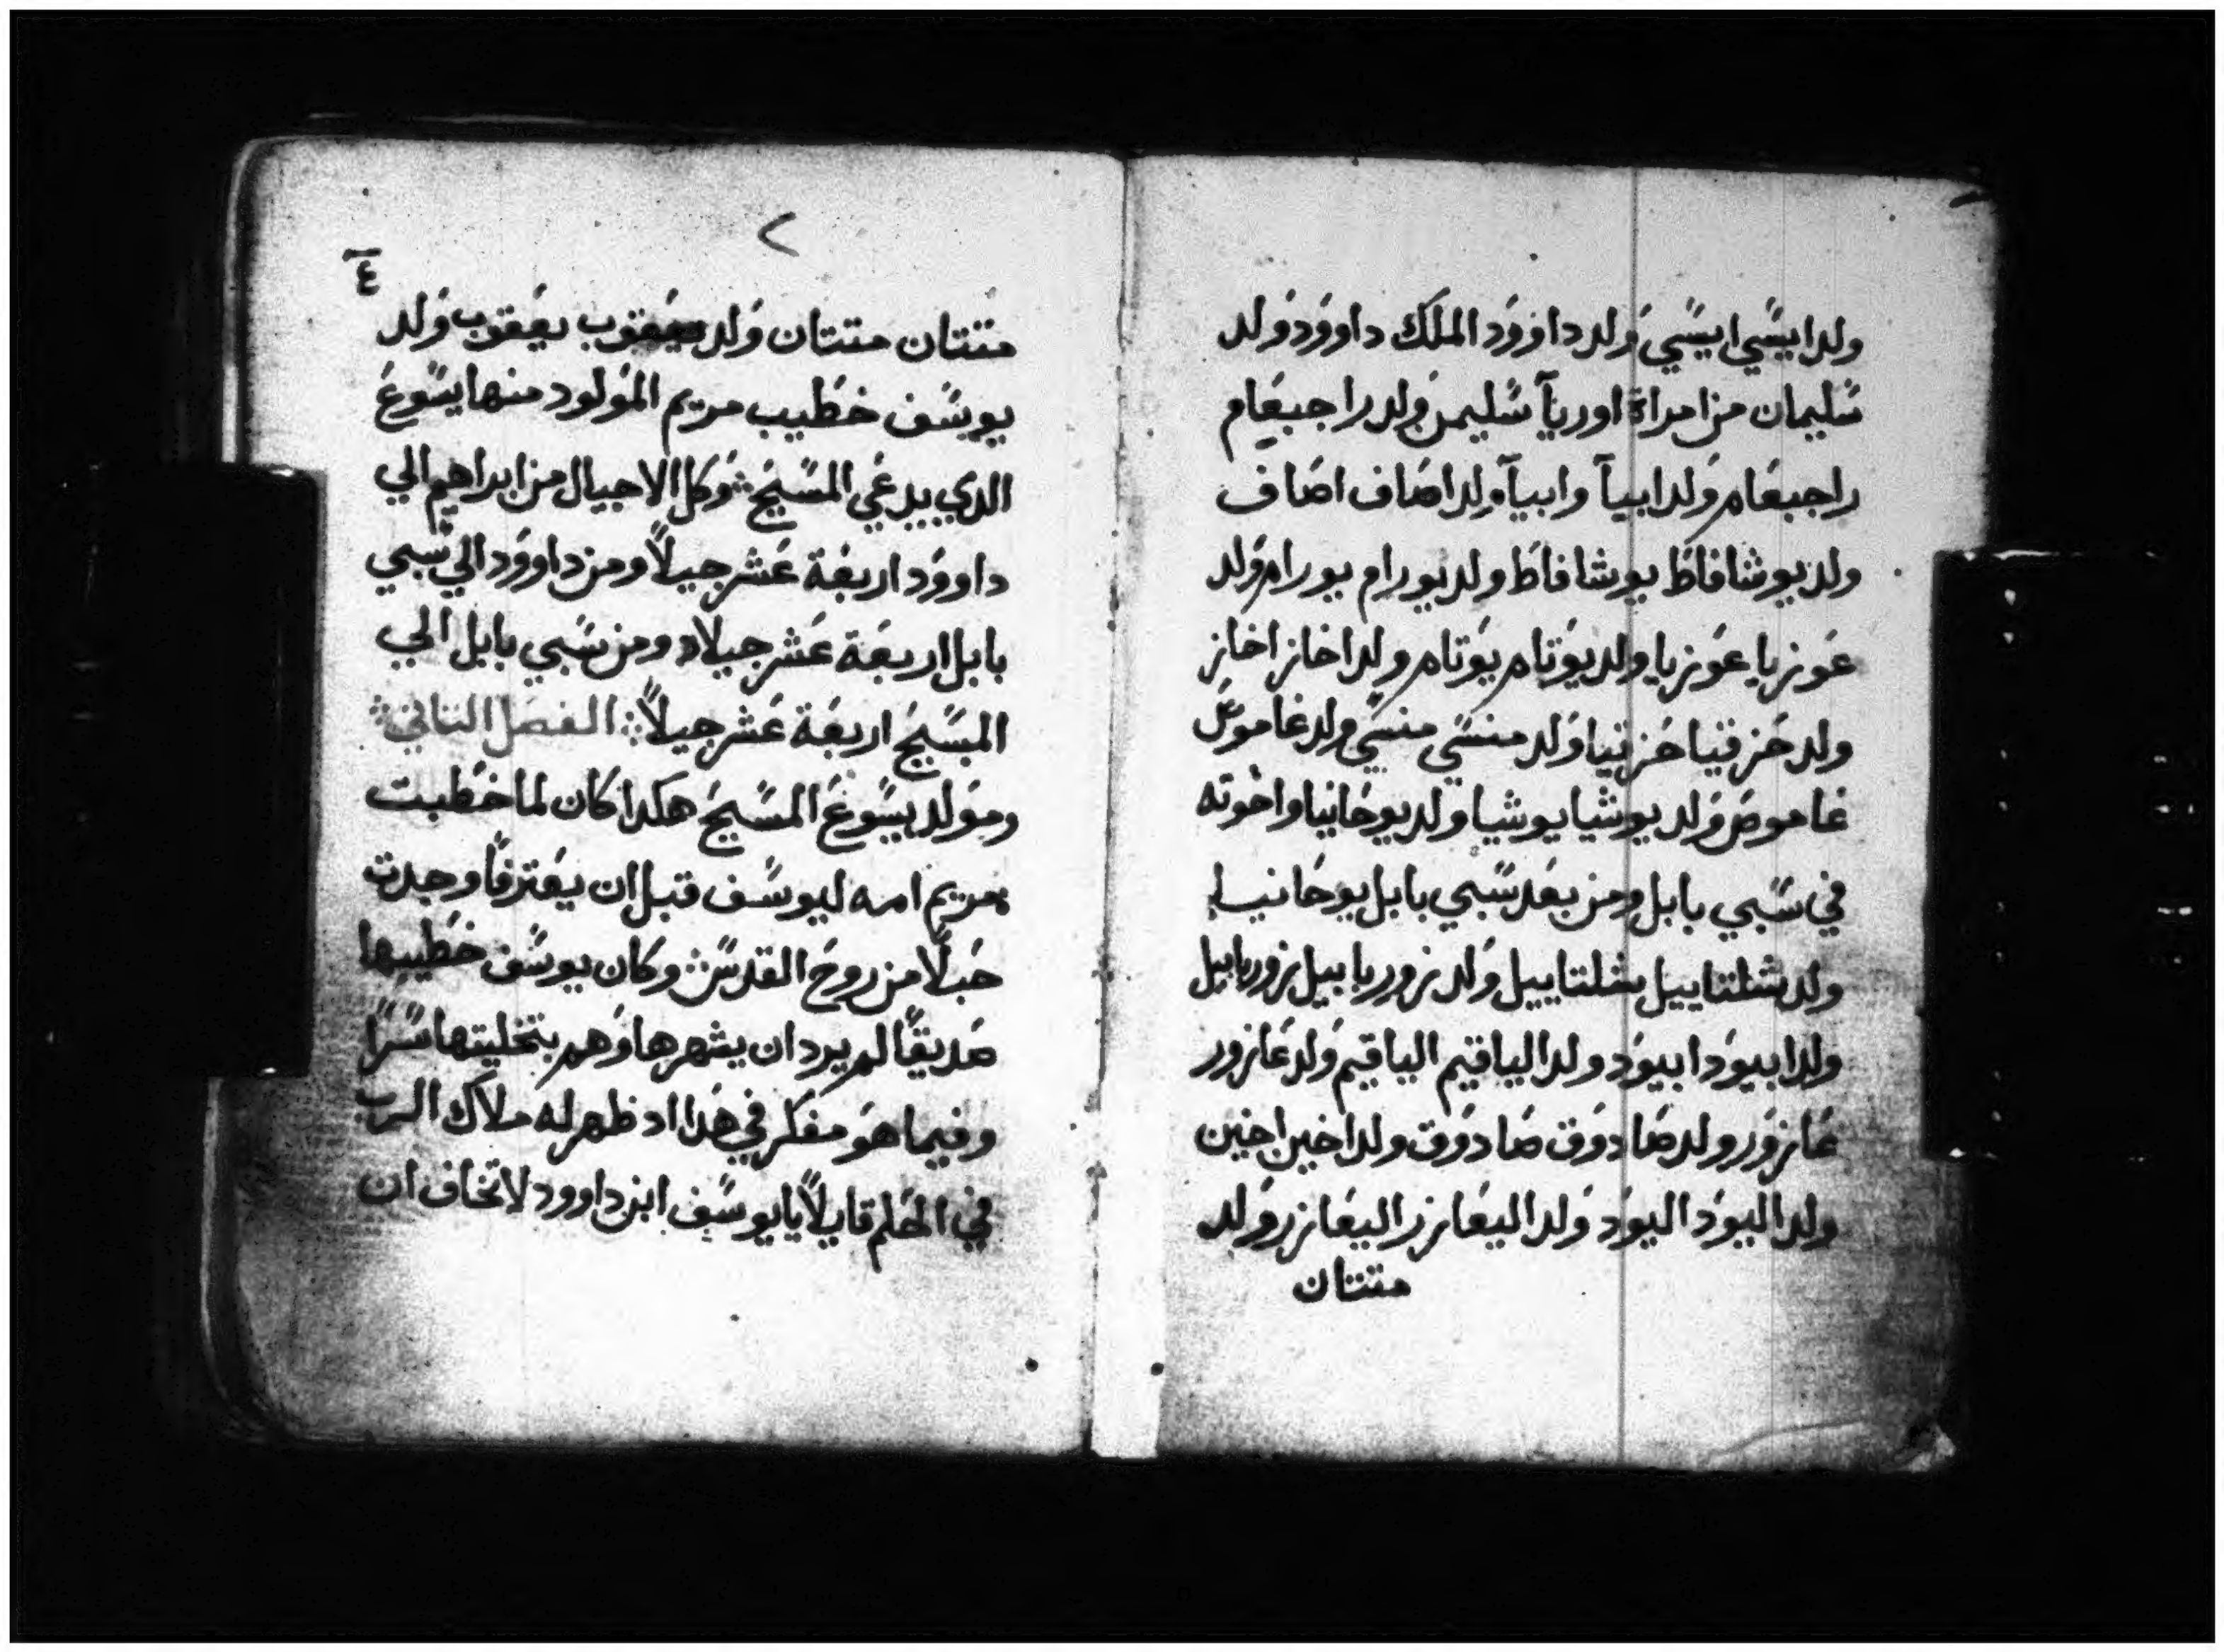 ولد ايسي ايسي ولد داوود الملك داوود ولد
سليمان من امراة اوريا سليمن ولد راجبعام
راجبعام ولد ابيا وابيا ولد اصاف اصاف
ولد يوشافاط يوشافاط ولد يورام يورام ولد
عوزيا عوزيا ولد يوتام يوتام ولد اخاز اخاز
ولد حزقيا حزقيا ولد منسي منسي ولد غاموص
غاموص ولد يوشيا يوشيا ولد يوخانيا واخوته
في سبي بابل ومن بعد سبي بابل يوخانيا
ولد شلتاييل شلتاييل ولد زورباييل زورباييل
ولد ابيود ابيود ولد الياقيم الياقيم ولد عازور
عازور ولد صادوق صادوق ولد اخين اخين
ولد اليود اليود ولد اليعازر اليعازر ولد
متتان
٤
متتان متتان ولد يعقوب يعقوب ولد
يوسف خطيب مريم المولود منها يسوع
الدي يدعي المسيح وكل الاجيال من ابراهيم الي
داوود اربعة عشر جيلاً ومن داوود الي سبي
بابل اربعة عشر جيلا ومن سبي بابل الي
المسيح اربعة عشر جيلاً الفصل التاني
ومولد يسوع المسيح هكدا كان لما خطبت
مريم امه ليوسف قبل ان يفترقا وجدت
حبلاً من روح القدس وكان يوسف خطيبها
صديقاً لم يرد ان يشهرها وهم بتخليتها سراً
وفيما هو مفكر في هدا اد ظهر له ملاك الرب
في الحلم قايلاً يا يوسف ابن داوود لا تخاف ان